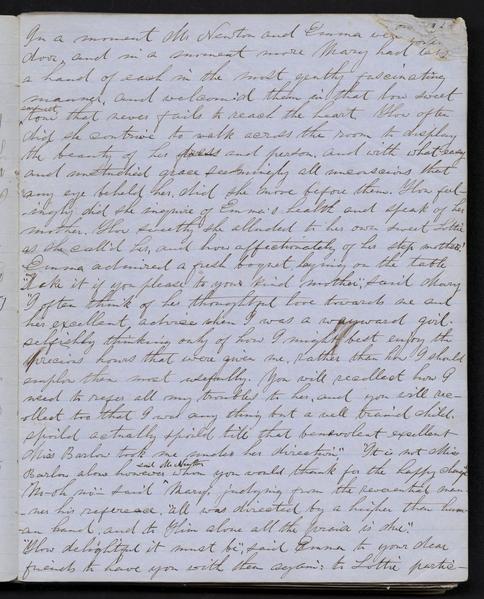 In a moment Mr Newton and Emma were
door, and in a moment more Mary had
a hand of each in the most gently fascinating
manner, and welcom'd them in that low sweet
tone that never fails to reach the heart. How often
did she contrive to walk across the room to display
the beauty of her dress and person, and with what easy
and unstudied grace seemingly all unconscious that
any eye beheld her, did she move before them. How feel-
ingly did she enquire of Emma's health and speak of her
mother. How sweetly she alluded to her own sweet Lottie
as she call'd her, and how affectionately of her step mother!
Emma admired a fresh boquet laying on the table
"Take it if you please to your kind mother", said Mary
"I often think of her thoughtful love towards me and
her excellent advise when I was a wayward girl.
selfishly thinking only of how I might best enjoy the
precious hours that were given me, rather than how I should
employ them most usefully. You will recollect how I
used to refer all my troubles to her, and you will rec-
ollect too that I was any thing but a well train'd child.
spoild actually spoild till that benevolent excellent
Miss Barlow took me under her direction" "It is not Miss
Barlow alone however said Mr Newton whom you would thank for the happy change"
said Mary, judging from the reverential man-
-ner his reference. "all was directed by a higher than hum-
an hand, and to Him alone all the praise is due".
"How delightful it must be", said Emma to your dear
friends to have you with them again: to Lottie partic-